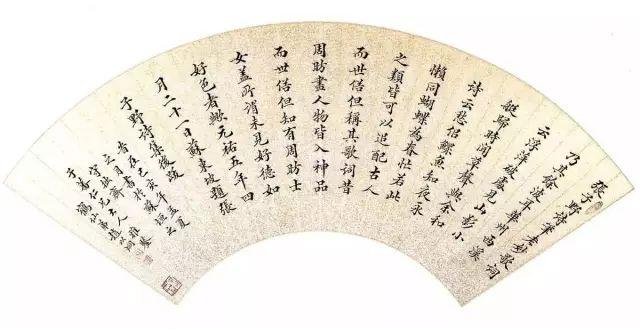 張子野詩筆老妙歌詞
乃其餘波耳華州西溪
云浮萍破處見山影小
艇歸時聞草聲與余和
詩云愁侶鰥魚知夜永
懶同蝴蝶為春忙若此
之類皆可以追配古人
而世俗但稱其歌詞昔
周昉畫人物皆入神品
而世俗但知有周昉士
女蓋所謂未見好德如
好色者歟元祐五年四
月二十一日蘇東坡題張
子野詩集後 孟夏
大人雅鑒